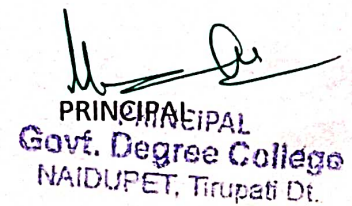 PRINCIPAL
PRINCIPAL
Govt. Degree College
NAIDUPET, Tirupati Dt.